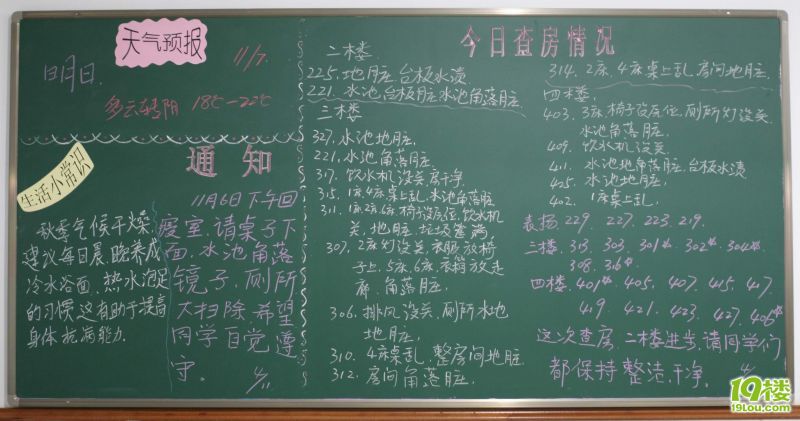 天气预报
11/7.
明日.
多云转阴 18℃-22℃
生活小常识
秋季气候干燥,
建议每日晨晚养成
冷水浴面、热水泡足
的习惯,这有助于提高
身体抗病能力.
通知
11月6日下午回
寝室,请桌子下
面,水池角落
镜子,厕所
大扫除.希望
同学自觉遵
守.
今日查房情况
二楼
225.地脏,台板水渍
221.水池,台板脏水池角落脏.
三楼
327.水池地脏.
221.水池角落脏.
317.饮水机没关,房干净.
315.1床4床桌上乱,水池角落脏
311.1床2床6床椅子没居位,饮水机
关.地脏.垃圾筐满
307.2床灯没关.衣服放椅
子上,5床,6床衣箱放走
廊.角落脏.
306.排风没关,厕所水池
地地脏.
310.4床桌乱.整房间地脏.
312.房间角落脏.
314.2床.4床桌上乱.房间地脏.
四楼.
403.3床椅子没居位,厕所灯没关.
水池角落脏.
409.饮水机没关
411.水池地角落脏.台板水渍
405.水池地脏.
402.1床桌上乱.
表扬 229. 227. 223. 219.
三楼. 313. 303. 301* 302* 304*
308. 316*
四楼. 401* 405. 407. 415. 417
419. 421. 423. 427. 406*
这次查房.二楼进步.请同学们
都保持整洁.干净.
19楼
19lou.com